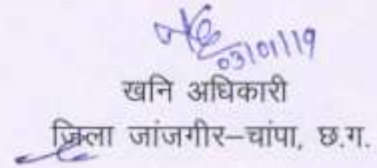 03/01/19
खनि अधिकारी
जिला जांजगीर–चांपा, छ.ग.